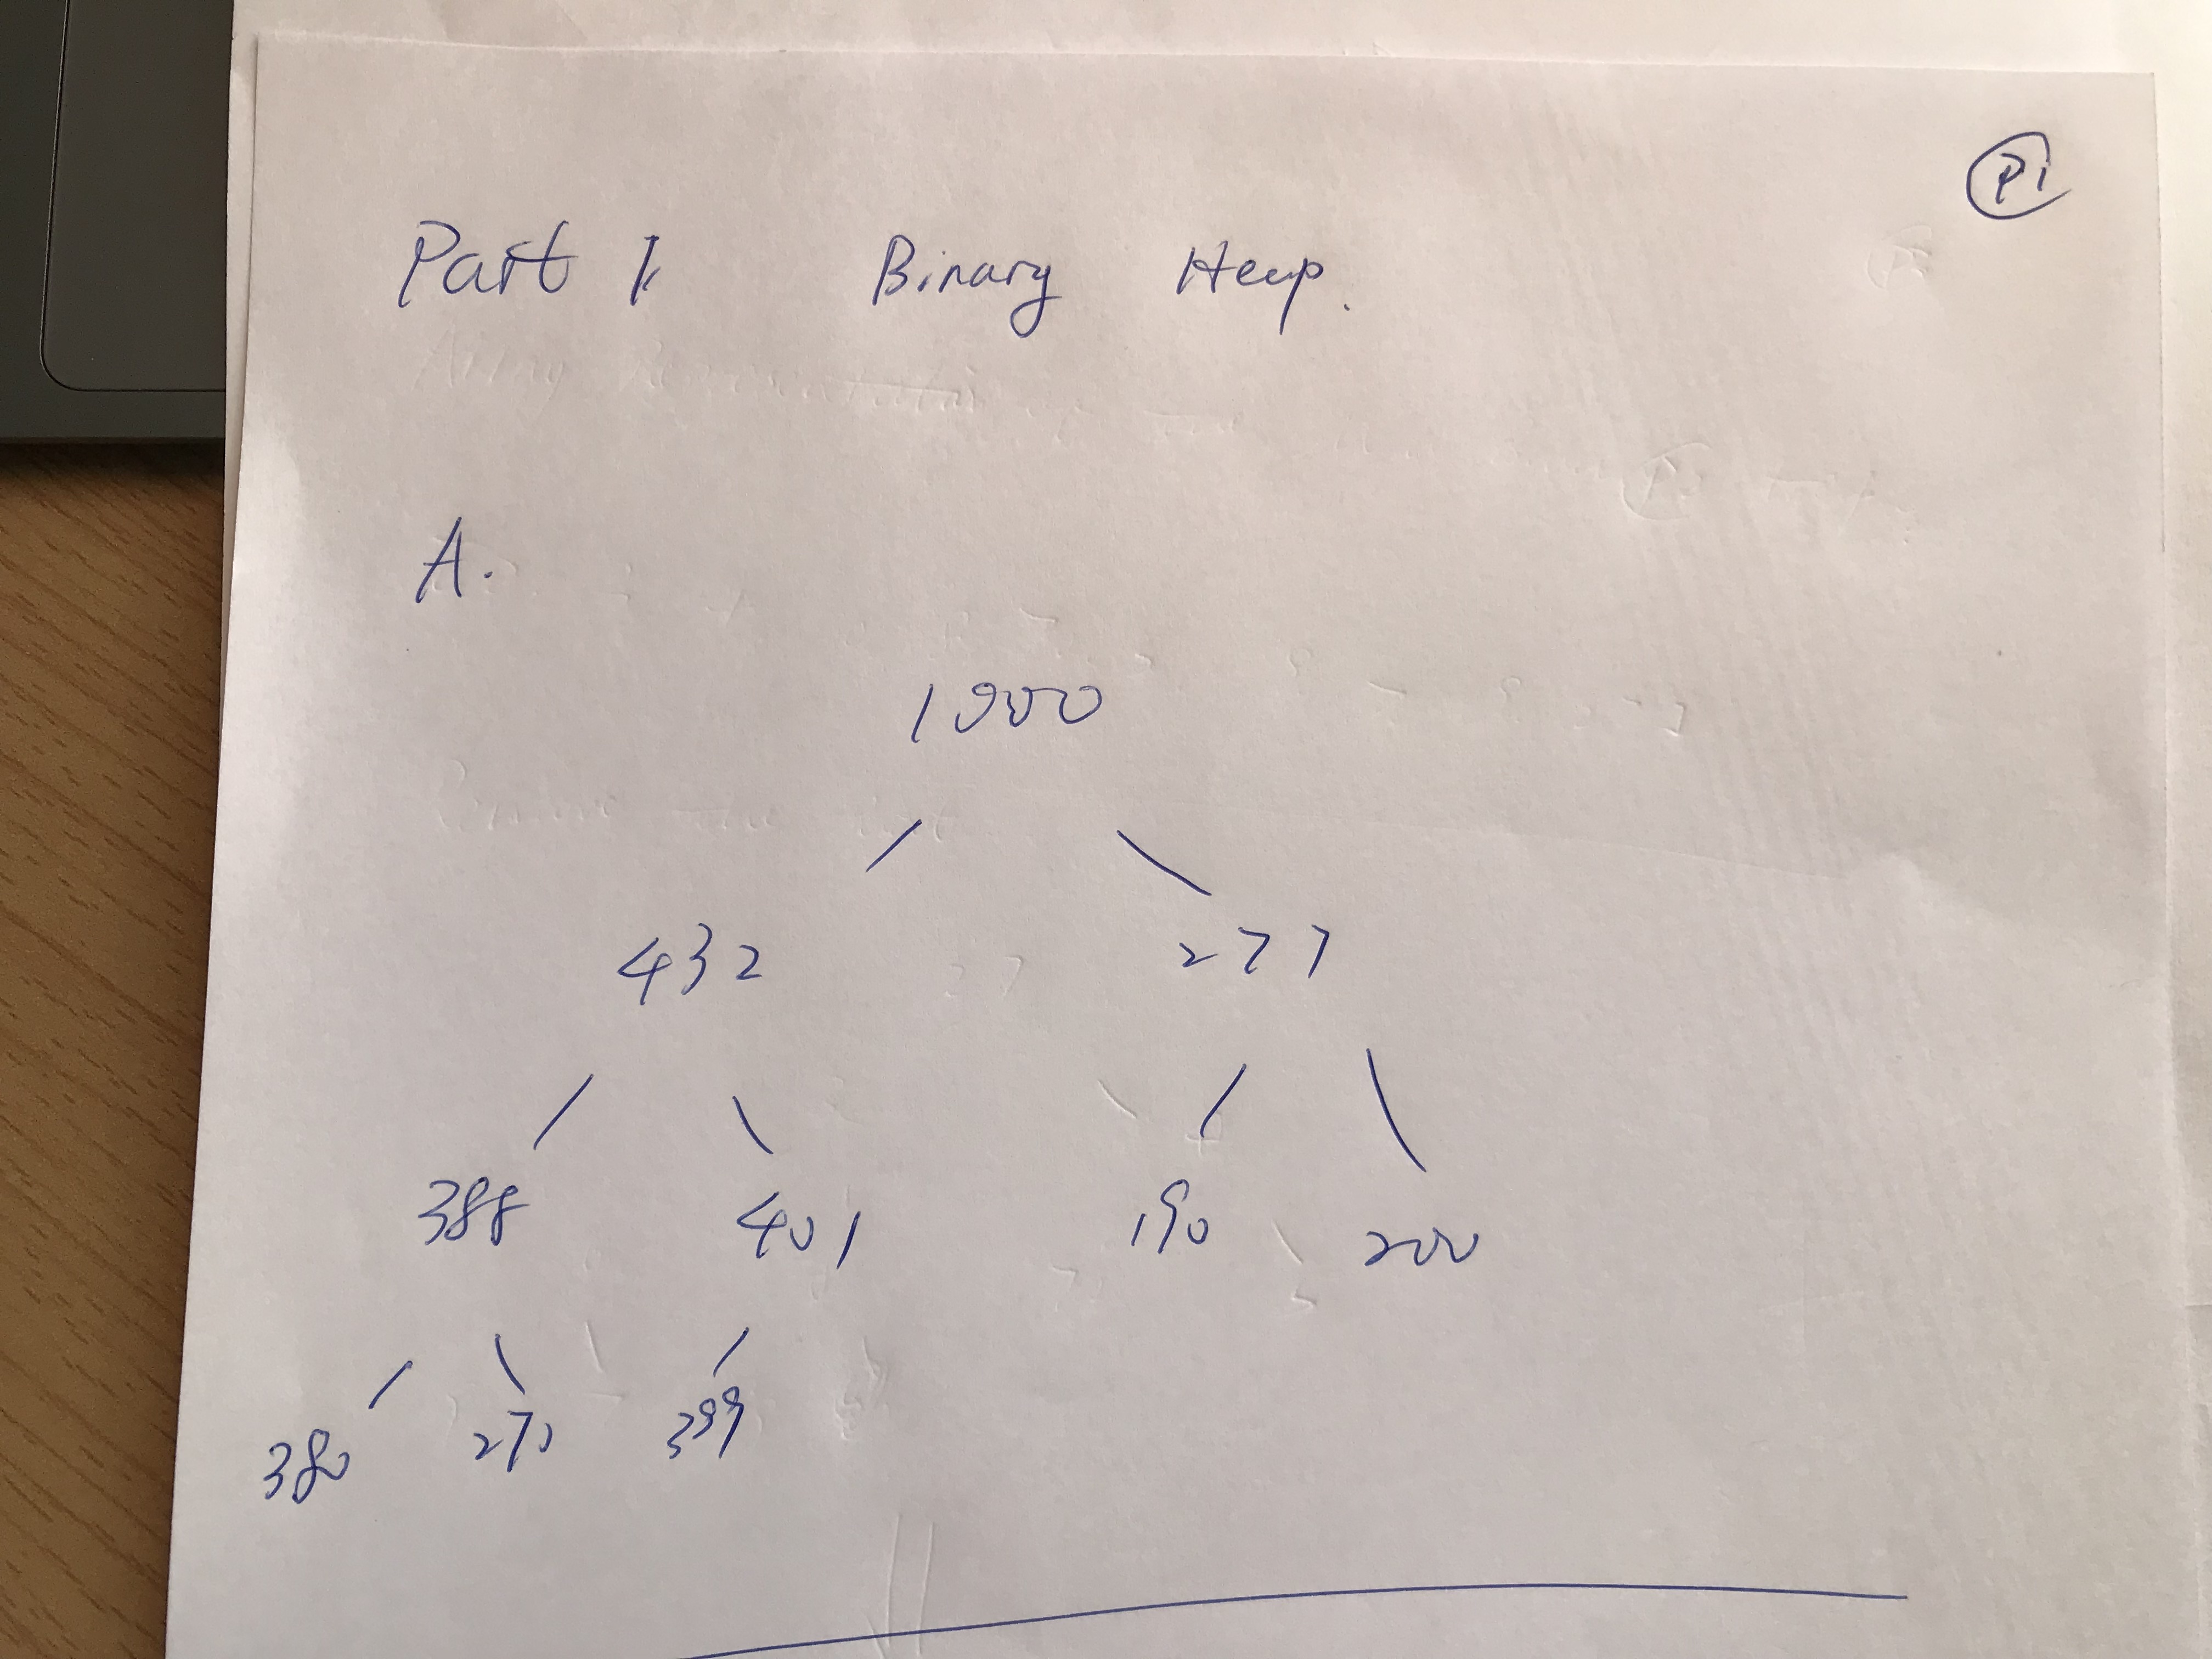 P1
Part 1. Binary Heap.
A.
1000
432 277
388 401 190 200
380 270 399